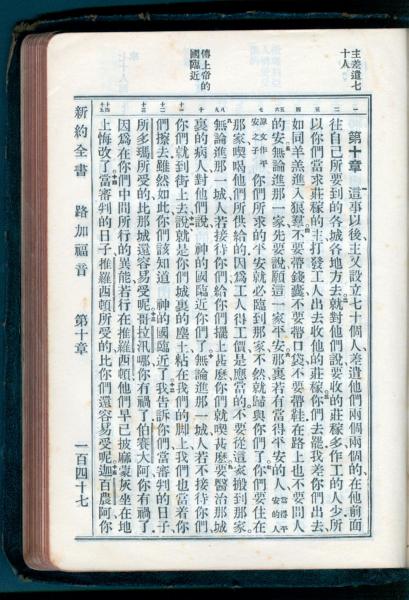 主差遣七
十人
傳上帝的
國臨近
第十章 這事以後、主又設立七十個人、差遣他們兩個兩個的、在他前面
往自己所要到的各城各地方去、就對他們說、要收的莊稼多、作工的人少、所
以你們當求莊稼的主、打發工人出去收他的莊稼、你們去罷、我差你們出去、
如同羊羔進入狼羣、不要帶錢囊、不要帶口袋、不要帶鞋、在路上也不要問人
的安、無論進那一家、先要說、願這一家平安、那裏若有當得平安的人、當得平安的人
原文作平安之子 你們所求的平安就必臨到那家、不然、就歸與你們了、你們要住在
那家、喫喝他們所供給的、因為工人得工價是應當的、不要從這家搬到那家、
無論進那一城、人若接待你們、給你們擺上甚麼、你們就喫甚麼、要醫治那城
裏的病人、對他們說、神的國臨近你們了、無論進那一城、人若不接待你們、
你們就到街上去、說、就是你們城裏的塵土、粘在我們的脚上、我們也當着你
們擦去、雖然如此、你們該知道神的國臨近了、我告訴你們、當審判的日子、
所多瑪所受的、比那城還容易受呢、哥拉汛哪、你有禍了、伯賽大阿、你有禍了、
因為在你們中間所行的異能、若行在推羅西頓、他們早已披麻蒙灰坐在地
上悔改了、當審判的日子、推羅西頓所受的、比你們還容易受呢、迦百農阿、你
新約全書 路加福音 第十章 一百四十七